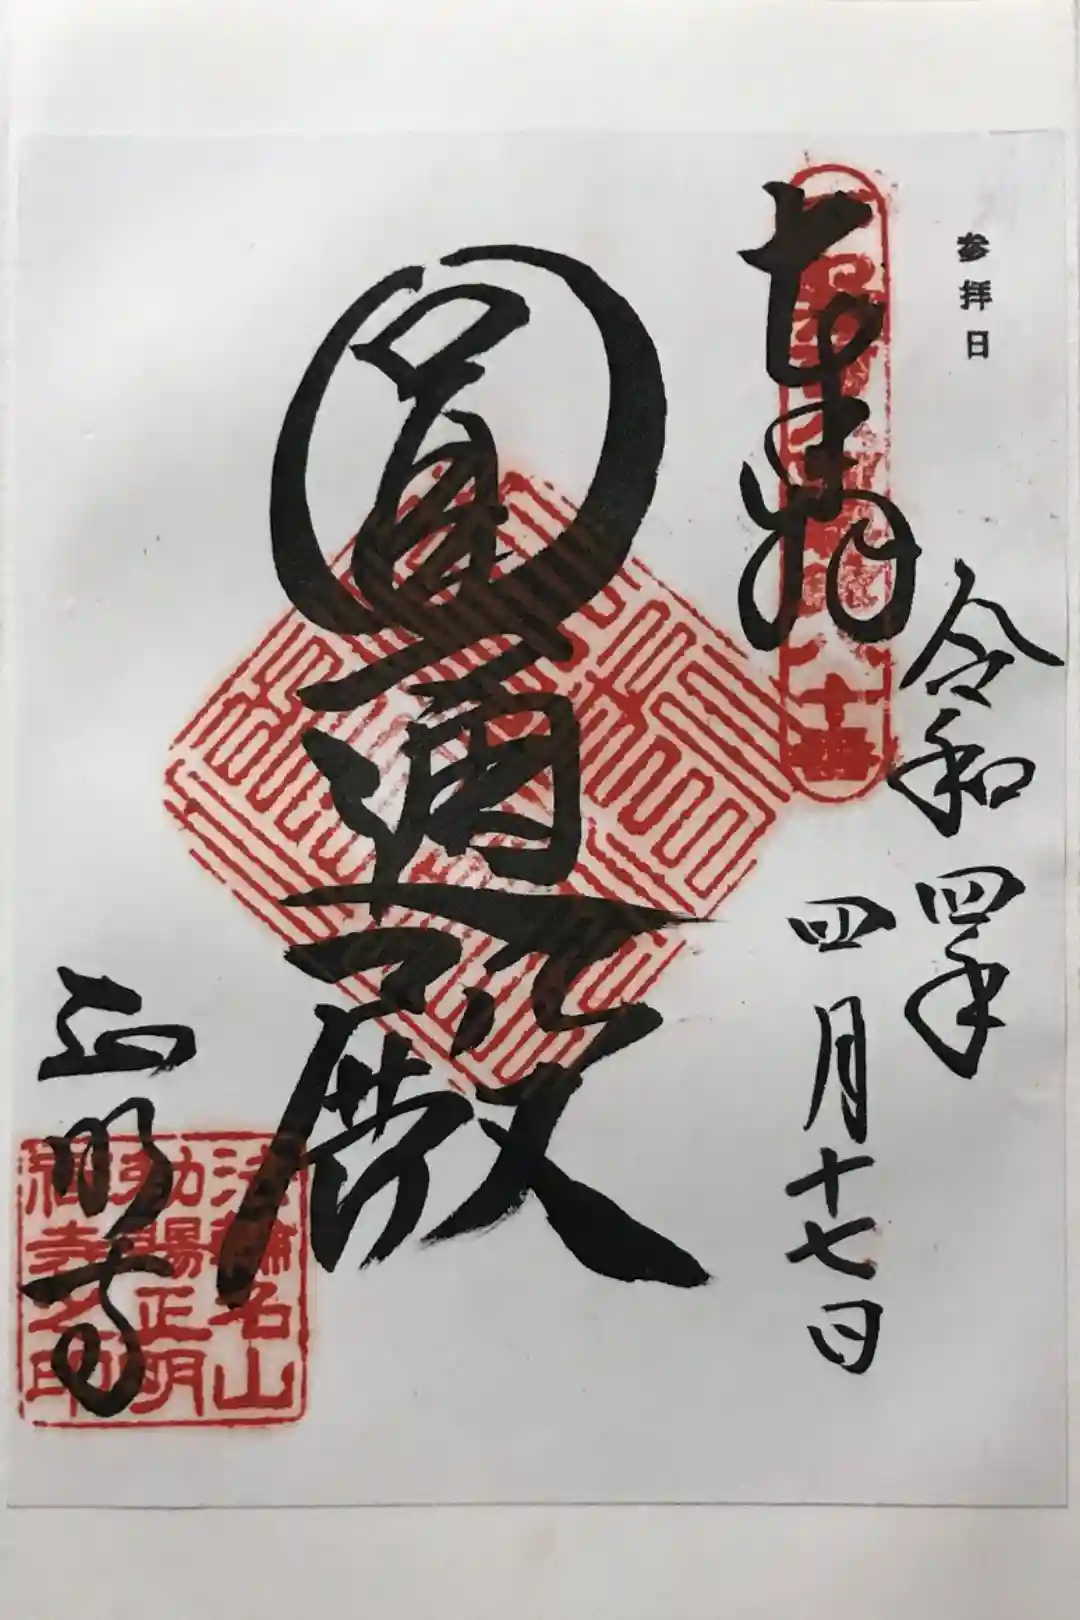 参拝日
令和四年
四月十七日
奉拝
圓通殿
正明寺
法輪名山
勅賜正明
禅寺之印